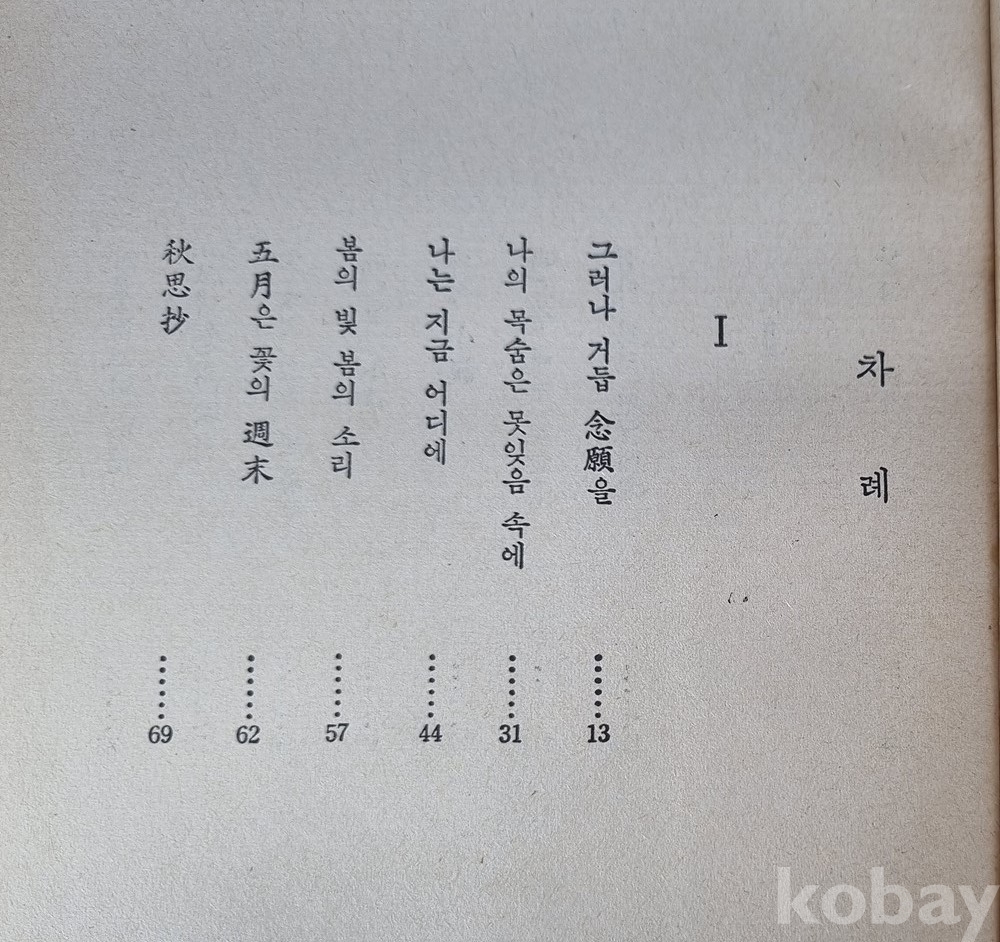 차례
I
그러나 거듭 念願을 ······ 13
나의 목숨은 못잊음 속에 ······ 31
나는 지금 어디에 ······ 44
봄의 빛 봄의 소리 ······ 57
五月은 꽃의 週末 ······ 62
秋思抄 ······ 69
kobay